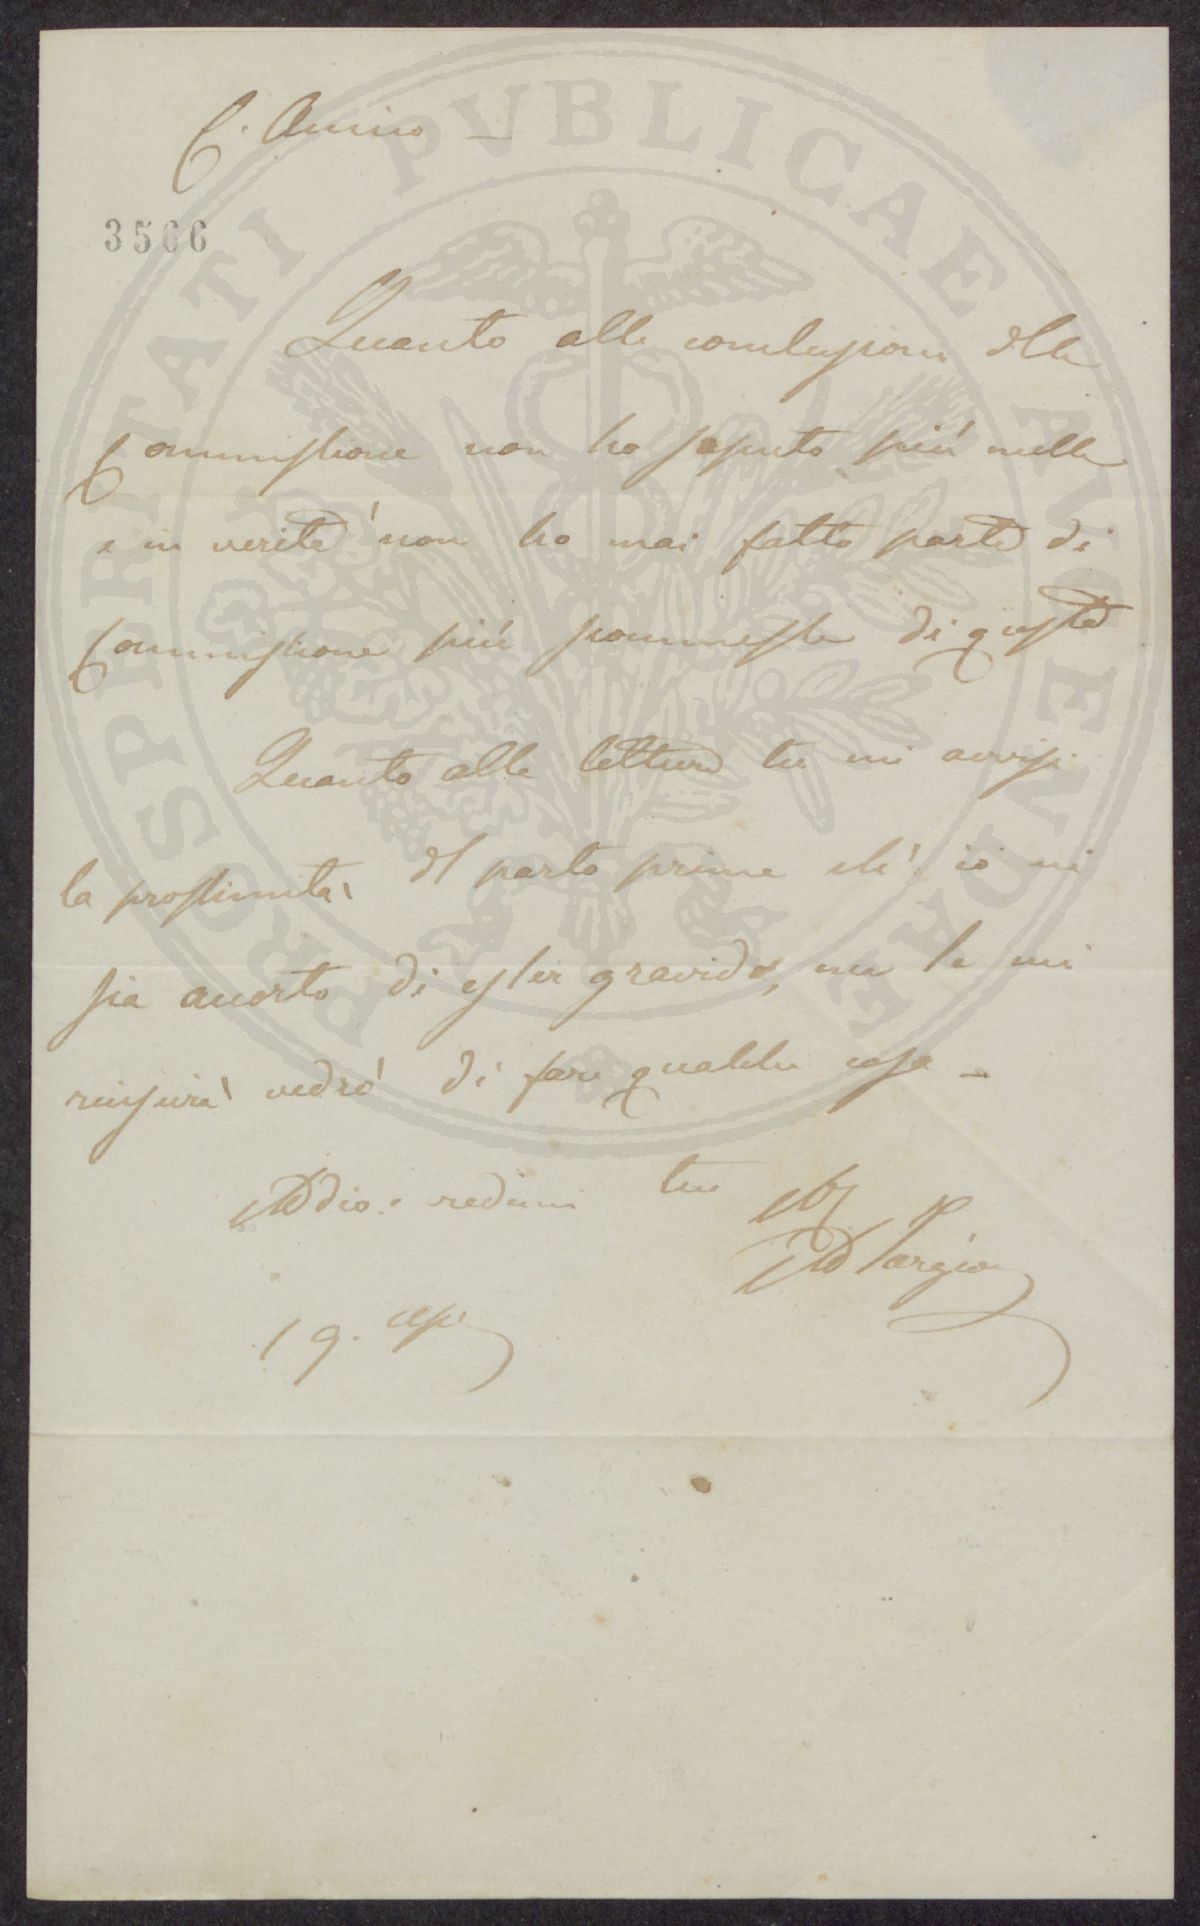 C. Amico —
3566
Quanto alle conclusioni della
Commissione non ho saputo più nulla
e in verità non ho mai fatto parte di
Commissione più sconnessa di questa
Quanto alle letture tu mi avvisi
la prossimità del parto prima ch' io mi
sia accorto di esser gravido, ma se mi
riuscirà vedrò di fare qualche cosa —
Addio. credimi tuo
Ad Targioni
19.
PROSPERITATI PVBLICAE AVGENDAE